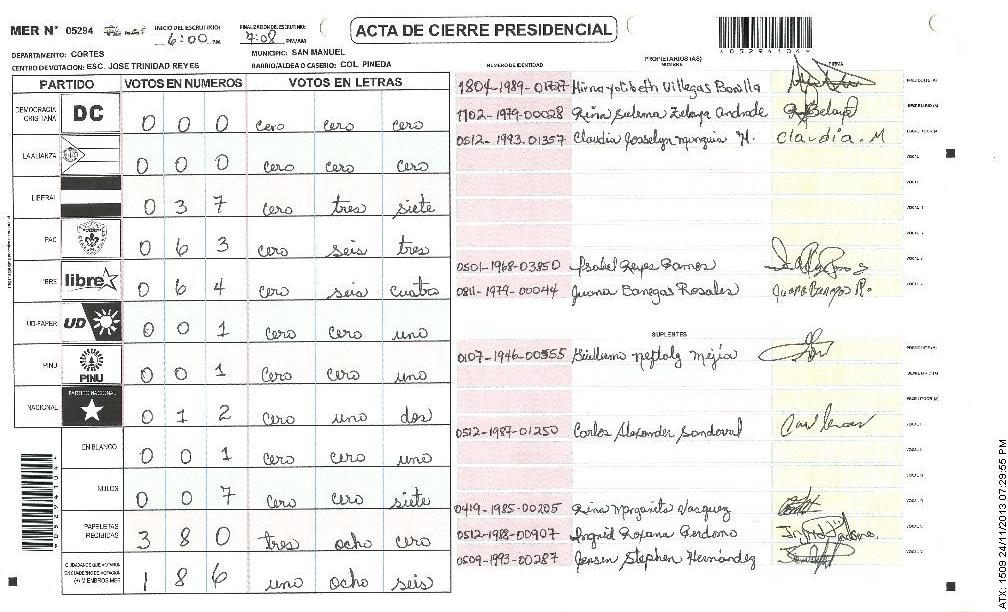 MER N° 05294
INICIO DEL ESCRUTINIO: 6:00 PM
FINALIZACION DE ESCRUTINIO: 7:08 PM/AM
ACTA DE CIERRE PRESIDENCIAL
05294104
DEPARTAMENTO: CORTES
MUNICIPIO: SAN MANUEL
CENTRO DE VOTACION: ESC. JOSE TRINIDAD REYES
BARRIO/ALDEA O CASERIO: COL. PINEDA
PARTIDO VOTOS EN NUMEROS VOTOS EN LETRAS
DEMOCRACIA CRISTIANA DC 0 0 0 cero cero cero
LA ALIANZA 0 0 0 cero cero cero
LIBERAL 0 3 7 cero tres siete
PAC 0 6 3 cero seis tres
LIBRE libre 0 6 4 cero seis cuatro
UD-FAPER UD 0 0 1 cero cero uno
PINU PINU 0 0 1 cero cero uno
NACIONAL PARTIDO NACIONAL 0 1 2 cero uno dos
EN BLANCO 0 0 1 cero cero uno
NULOS 0 0 7 cero cero siete
PAPELETAS RECIBIDAS 3 8 0 tres ocho cero
CIUDADANOS QUE VOTARON EN CUADERNO DE VOTACION (+) MIEMBROS MER 1 8 6 uno ocho seis
PROPIETARIOS (AS)
NUMERO DE IDENTIDAD NOMBRE FIRMA
1804-1989-01727 Mirna yolibeth Villegas Bonilla
1102-1979-00028 Rina Sulema Zelaya Andrade
0512-1993-01357 Claudia Josselyn munguia M. Claudia.M
0501-1968-03850 Isabel Reyes Ramos
0811-1979-00044 Juana Banegas Rosales Juana Banegas R.
SUPLENTES
0107-1946-00555 Guillermo neftaly mejia
0512-1987-01250 Carlos Alexander Sandoval
0419-1985-00205 Rina Margarita Vasquez
0512-1988-00907 Ingrid Roxana Perdomo
0509-1993-00287 Jensen Stephen Hernández
ATX: 1509 24/11/2013 07:29:55 PM